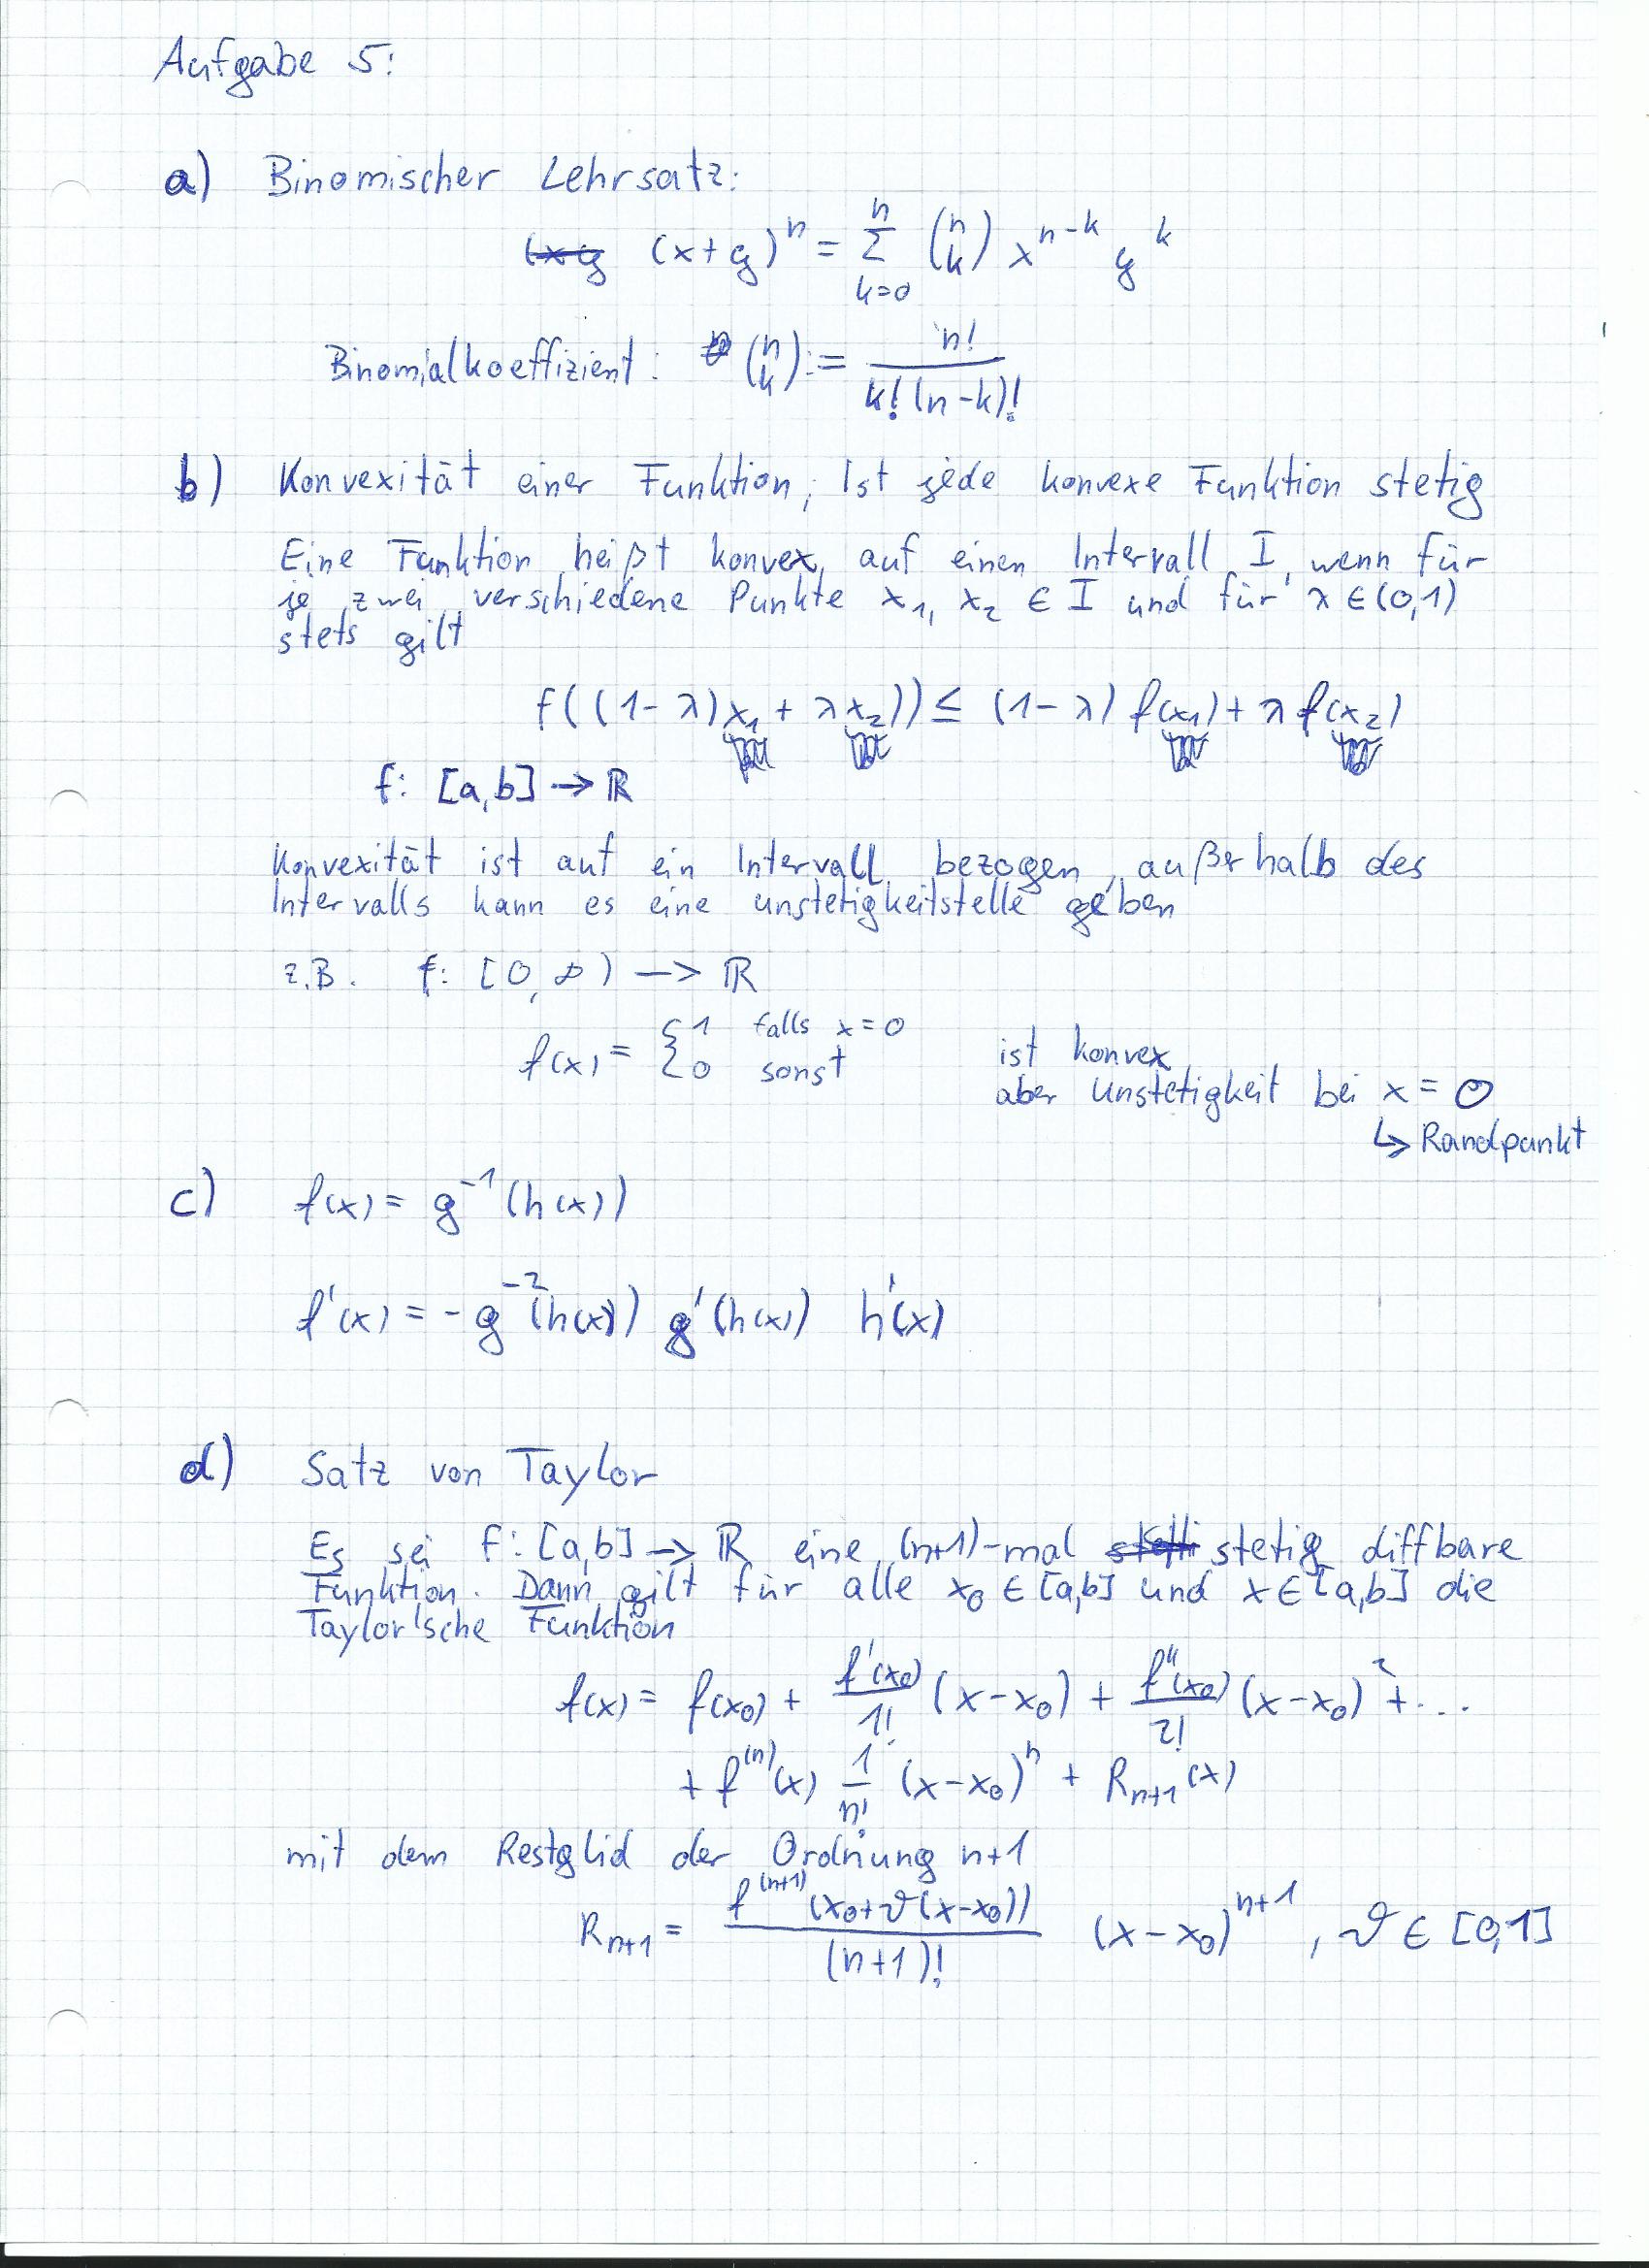 Aufgabe 5:
a) Binomischer Lehrsatz:
(x+y)^n = Σ_{k=0}^{n} (n k) x^{n-k} y^k
Binomialkoeffizient: (n k) := n! / k!(n-k)!
b) Konvexität einer Funktion, Ist jede konvexe Funktion stetig
Eine Funktion heißt konvex auf einen Intervall I, wenn für
je zwei verschiedene Punkte x₁, x₂ ∈ I und für λ ∈ (0,1)
stets gilt
f((1-λ)x₁ + λx₂)) ≤ (1-λ) f(x₁) + λ f(x₂)
f: [a,b] → ℝ
Konvexität ist auf ein Intervall bezogen, außerhalb des
Intervalls kann es eine unstetigkeitstelle geben
z.B. f: [0,∞) → ℝ
f(x) = { 1 falls x=0
0 sonst
ist konvex
aber Unstetigkeit bei x=0
↳ Randpunkt
c) f(x) = g^{-1}(h(x))
f'(x) = -g^{-2}(h(x)) g'(h(x)) h'(x)
d) Satz von Taylor
Es sei f: [a,b] → ℝ eine (n+1)-mal stetig diffbare
Funktion. Dann gilt für alle x₀ ∈ [a,b] und x ∈ [a,b] die
Taylor'sche Funktion
f(x) = f(x₀) + f'(x₀)/1! (x-x₀) + f''(x₀)/2! (x-x₀)² + ...
+ f^{(n)}(x) 1/n! (x-x₀)^n + R_{n+1}(x)
mit dem Restglid der Ordnung n+1
R_{n+1} = f^{(n+1)}(x₀+ϑ(x-x₀)) / (n+1)! (x-x₀)^{n+1}, ϑ ∈ [0,1]